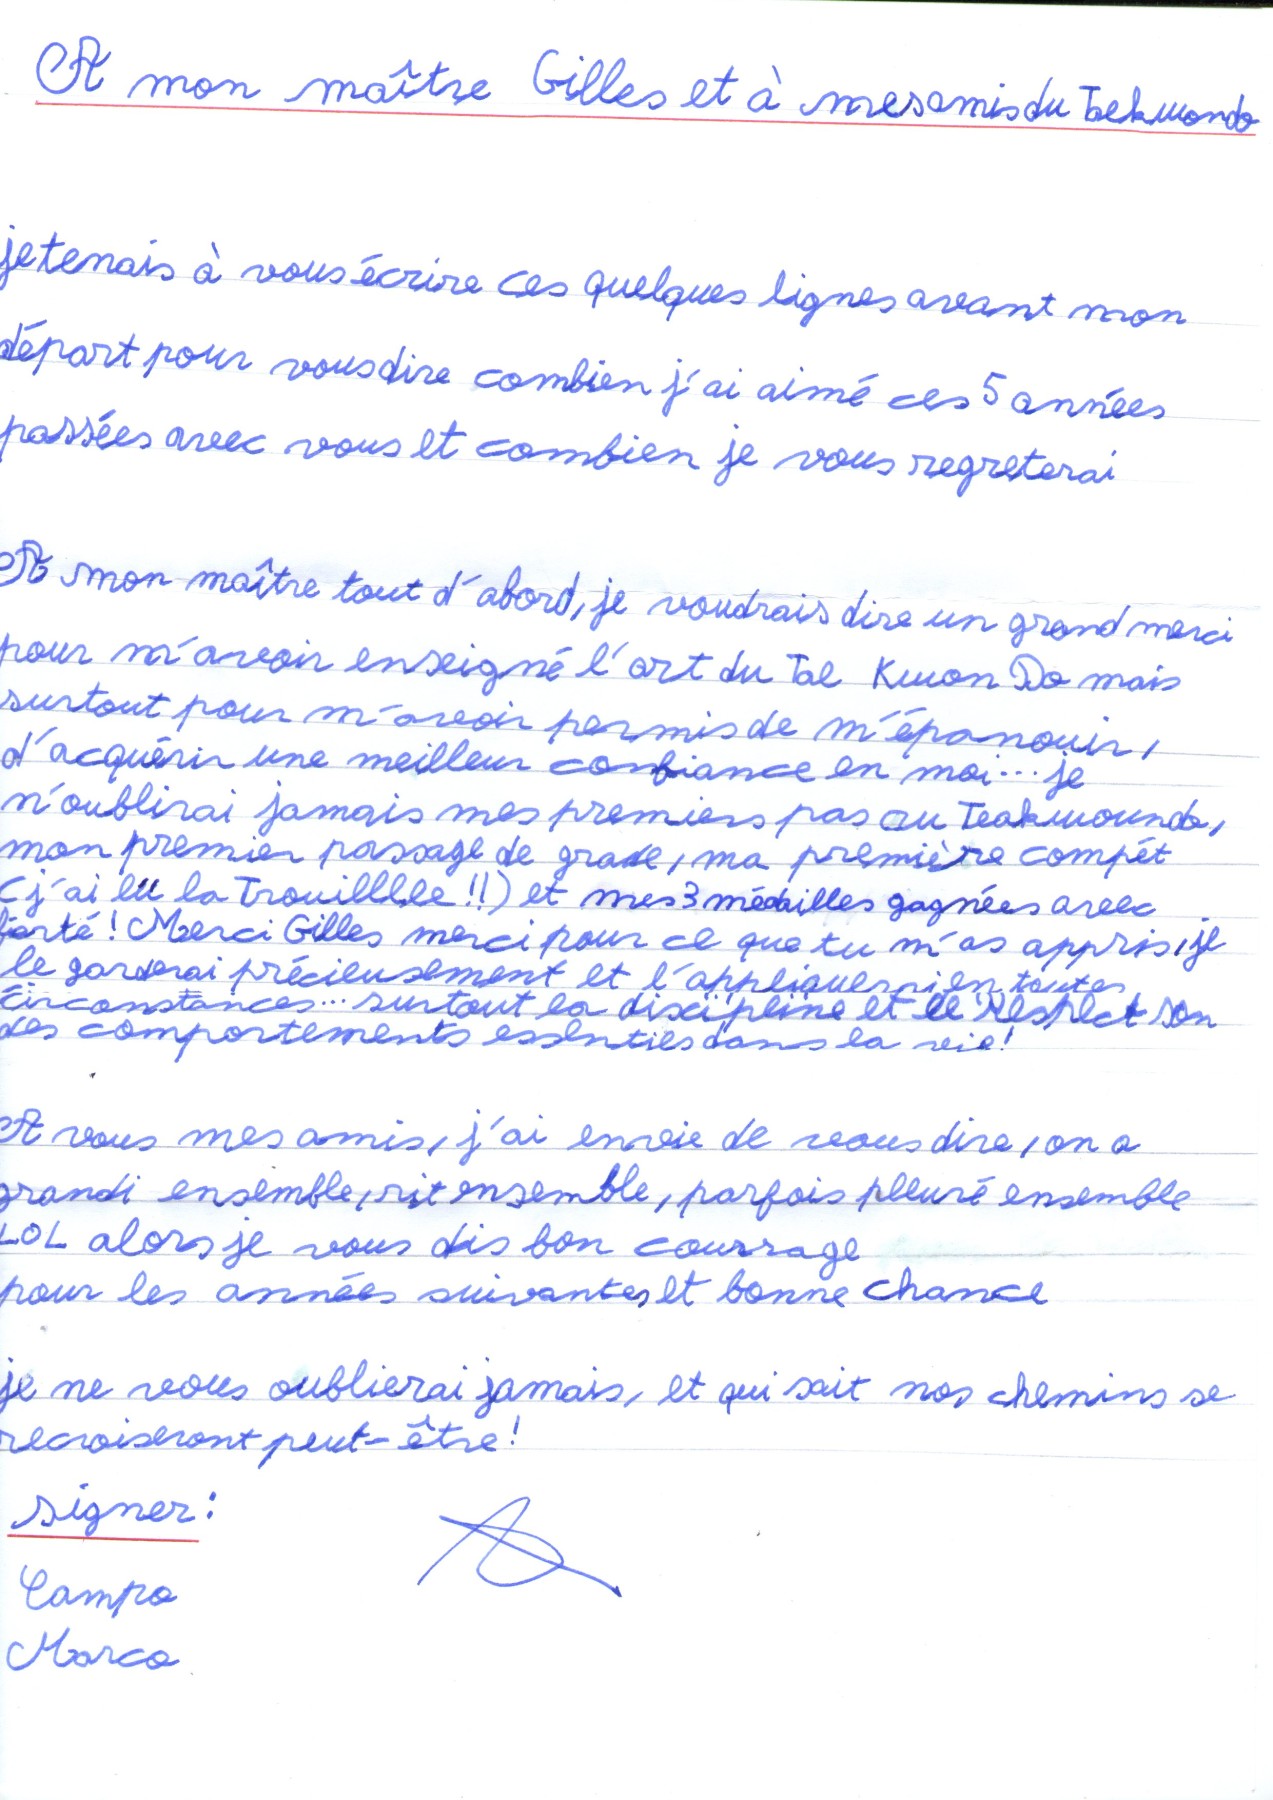 A mon maître Gilles et à mes amis du Taekwondo
je tenais à vous écrire ces quelques lignes avant mon
départ pour vous dire combien j'ai aimé ces 5 années
passées avec vous et combien je vous regreterai
A mon maître tout d'abord, je voudrais dire un grand merci
pour m'avoir enseigné l'art du Tae Kwon Do mais
surtout pour m'avoir permis de m'épanouir,
d'acquérir une meilleur confiance en moi... je
n'oublirai jamais mes premiers pas au Teakwoundo,
mon premier passage de grade, ma première compét
(j'ai eu la Trouilllle !!) et mes 3 médailles gagnées avec
fierté ! Merci Gilles merci pour ce que tu m'as appris, je
le garderai précieusement et l'appliquerai en toutes
circonstances... surtout la discipline et le Respect son
des comportements essentiels dans la vie !
A vous mes amis, j'ai envie de vous dire, on a
grandi ensemble, rit ensemble, parfois pleuré ensemble
LOL alors je vous dis bon courrage
pour les années suivantes et bonne chance
je ne vous oublierai jamais, et qui sait nos chemins se
recroiseront peut-être !
signer :
Campo
Marco